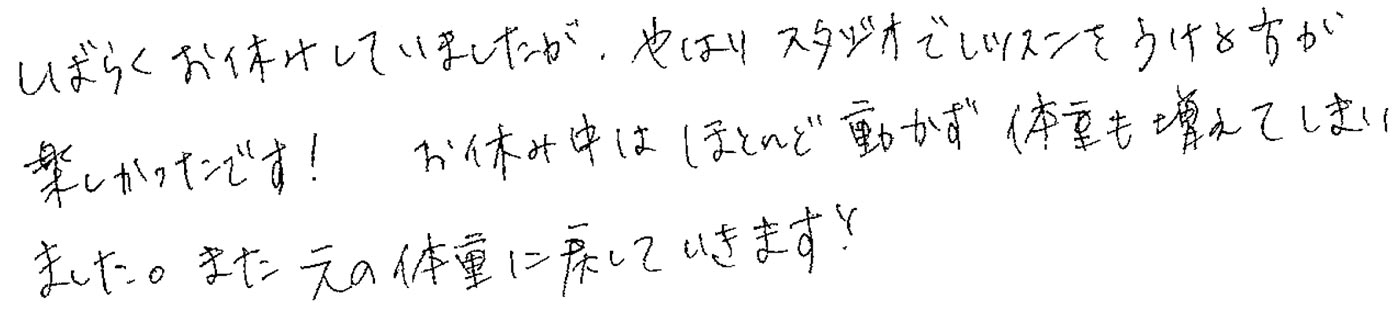 しばらくお休みしていましたが、やはりスタジオでレッスンをうける方が
楽しかったです！ お休み中はほとんど動かず体重も増えてしまい
ました。また元の体重に戻していきます！